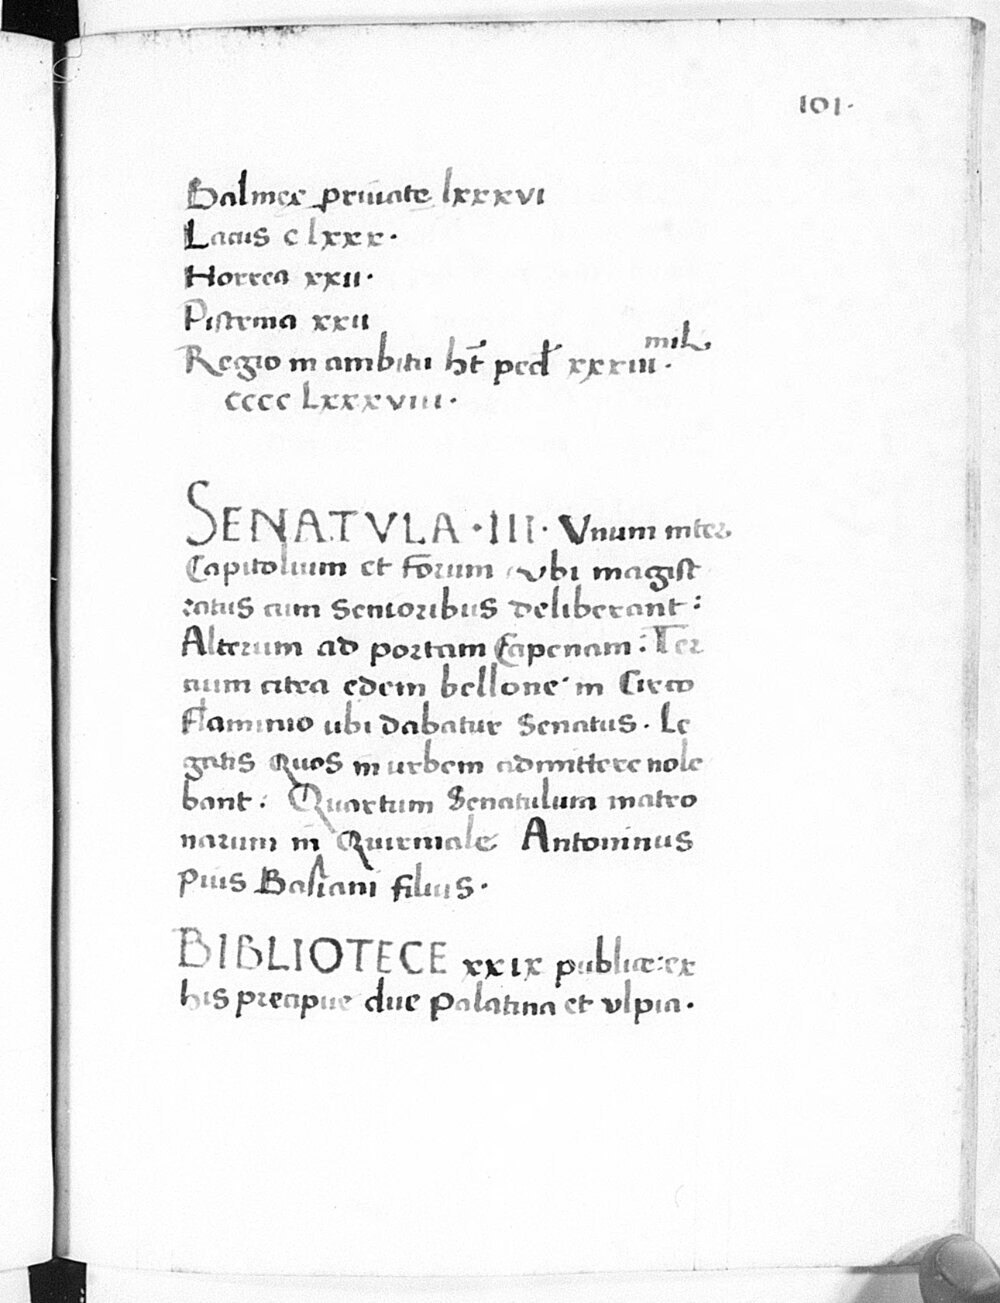 101·
Balinee private lxxxvi
Lacus c lxxx·
Horrea xxii·
Pistrina xxii
Regio in ambitu ht̄ ped xxxiii mil·
cccc Lxxxviii·
SENATVLA ·III· Vnum inter
Capitolium et forum vbi magist
ratus cum senioribus deliberant:
Alterum ad portam Capenam: Ter
cium citra edem bellone in Circo
flaminio ubi dabatur Senatus· Le
gatis Quos in urbem admittere nole
bant: Quartum Senatulum matro
narum in Quirinale Antoninus
pius Basiani filius·
BIBLIOTECE xxix publice: ex
his precipue due Palatina et vlpia·